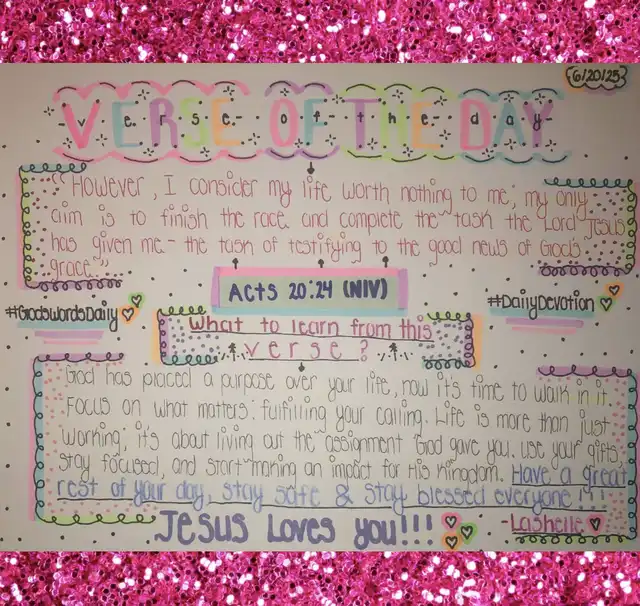 6/20/25
VERSE OF THE DAY
verse of the day
"However, I consider my life worth nothing to me; my only
aim is to finish the race and complete the task the Lord Jesus
has given me - the task of testifying to the good news of God's
grace."
Acts 20:24 (NIV)
#GodsWordsDaily
#DailyDevotion
What to learn from this
verse?
God has placed a purpose over your life, now it's time to walk in it.
Focus on what matters; fulfilling your calling. Life is more than just
working; it's about living out the assignment God gave you. use your gifts,
stay focused, and start making an impact for His Kingdom. Have a great
rest of your day, stay safe & stay blessed everyone!!!
Jesus Loves you!!!
-Lashelle